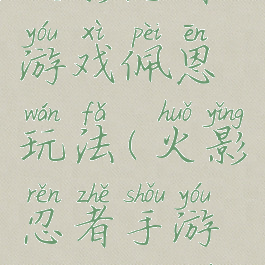 yóu xì pèi ēn
游戏佩恩
wán fǎ huǒ yǐng
玩法(火影
rěn zhě shǒu yóu
忍者手游